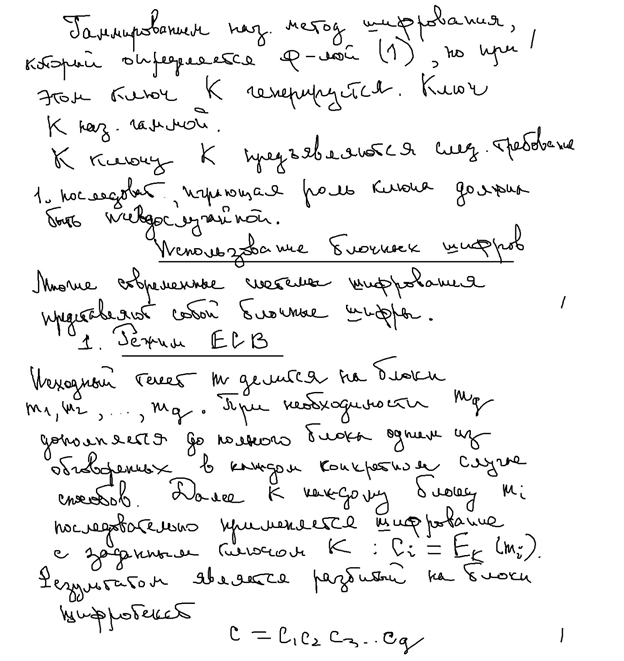 Гаммированием наз. метод шифрования,
который определяется ф-лой (1), но при
этом ключ K генерируется. Ключ
K наз. гаммой.
К ключу K предъявляются след. требование
1. последоват., играющая роль ключа должна
быть псевдослучайной.
Использование блочных шифров
Многие современные системы шифрования
представляют собой блочные шифры.
1. Режим ECB
Исходный текст m делится на блоки
m1, m2, ..., mq. При необходимости mq
дополняется до полного блока одним из
обговоренных в каждом конкретном случае
способов. Далее к каждому блоку mi
последовательно применяется шифрование
с заданным ключом K : Ci = EK (mi).
Результатом является разбитый на блоки
шифротекст
C = C1 C2 C3 .. Cq